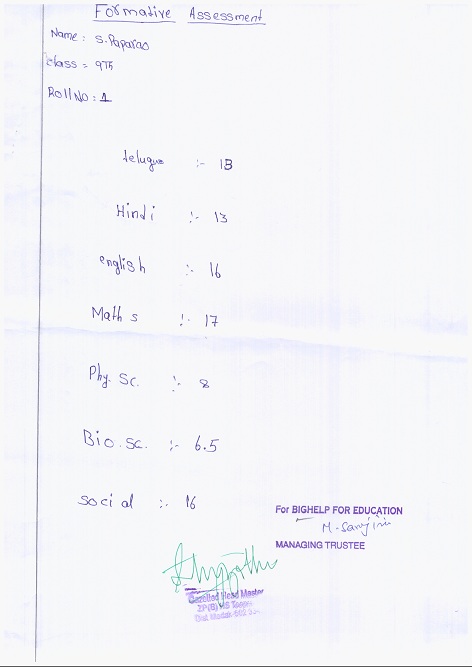 Formative Assessment
Name : S. Paparao
class = 9th
Roll No : 1
telugu :- 13
Hindi :- 13
english :- 16
Maths :- 17
Phy. Sc. :- 8
Bio. sc. :- 6.5
social :- 16
For BIGHELP FOR EDUCATION
M. Sarojini
MANAGING TRUSTEE
Head Master